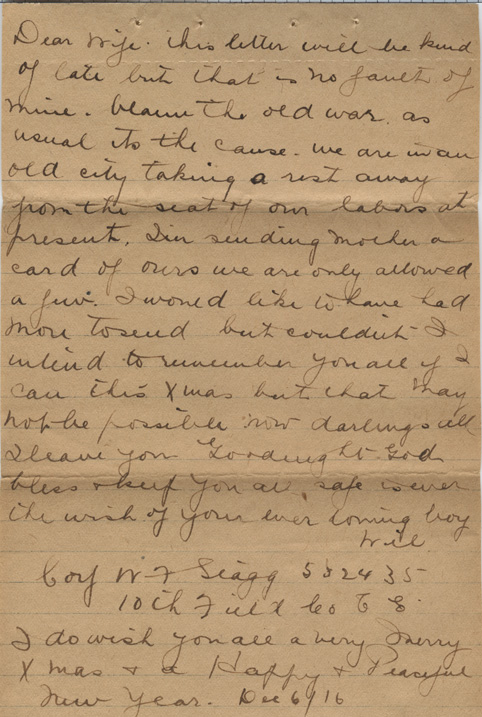 Dear Wife. this letter will be kind
of late but that is no fault of
mine. blame the old war. as
usual its the cause. we are in an
old city taking a rest away
from the seat of our labors at
present. I'm sending Mother a
card of ours we are only allowed
a few. I would like to have had
more to send but couldn't I
intend to remember you all if I
can this Xmas but that may
not be possible now darlings all
I leave you Goodnight God
bless & keep you all, safe is ever
the wish of your ever loving boy
Will
Corp W F 532435
10th Field Co C E
I do wish you all a very Merry
Xmas & a Happy & Peaceful
New Year. Dec 6/16